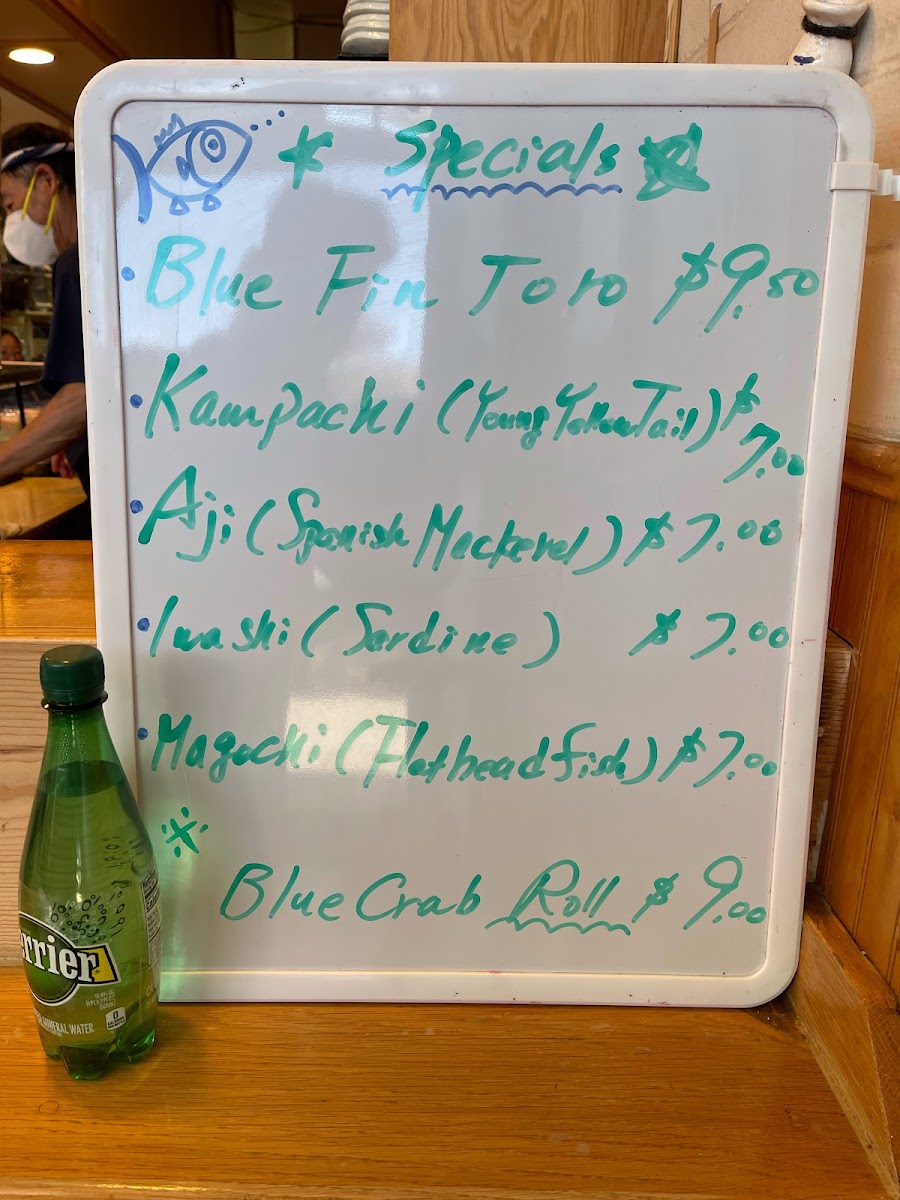 Specials
Blue Fin Toro $9.50
Kampachi (Young YellowTail) $
7.00
Aji (Spanish Mackerel) $7.00
Iwashi (Sardine) $7.00
Magochi (Flathead fish) $7.00
※
Blue Crab Roll $9.00
errier
MINERAL WATER
0